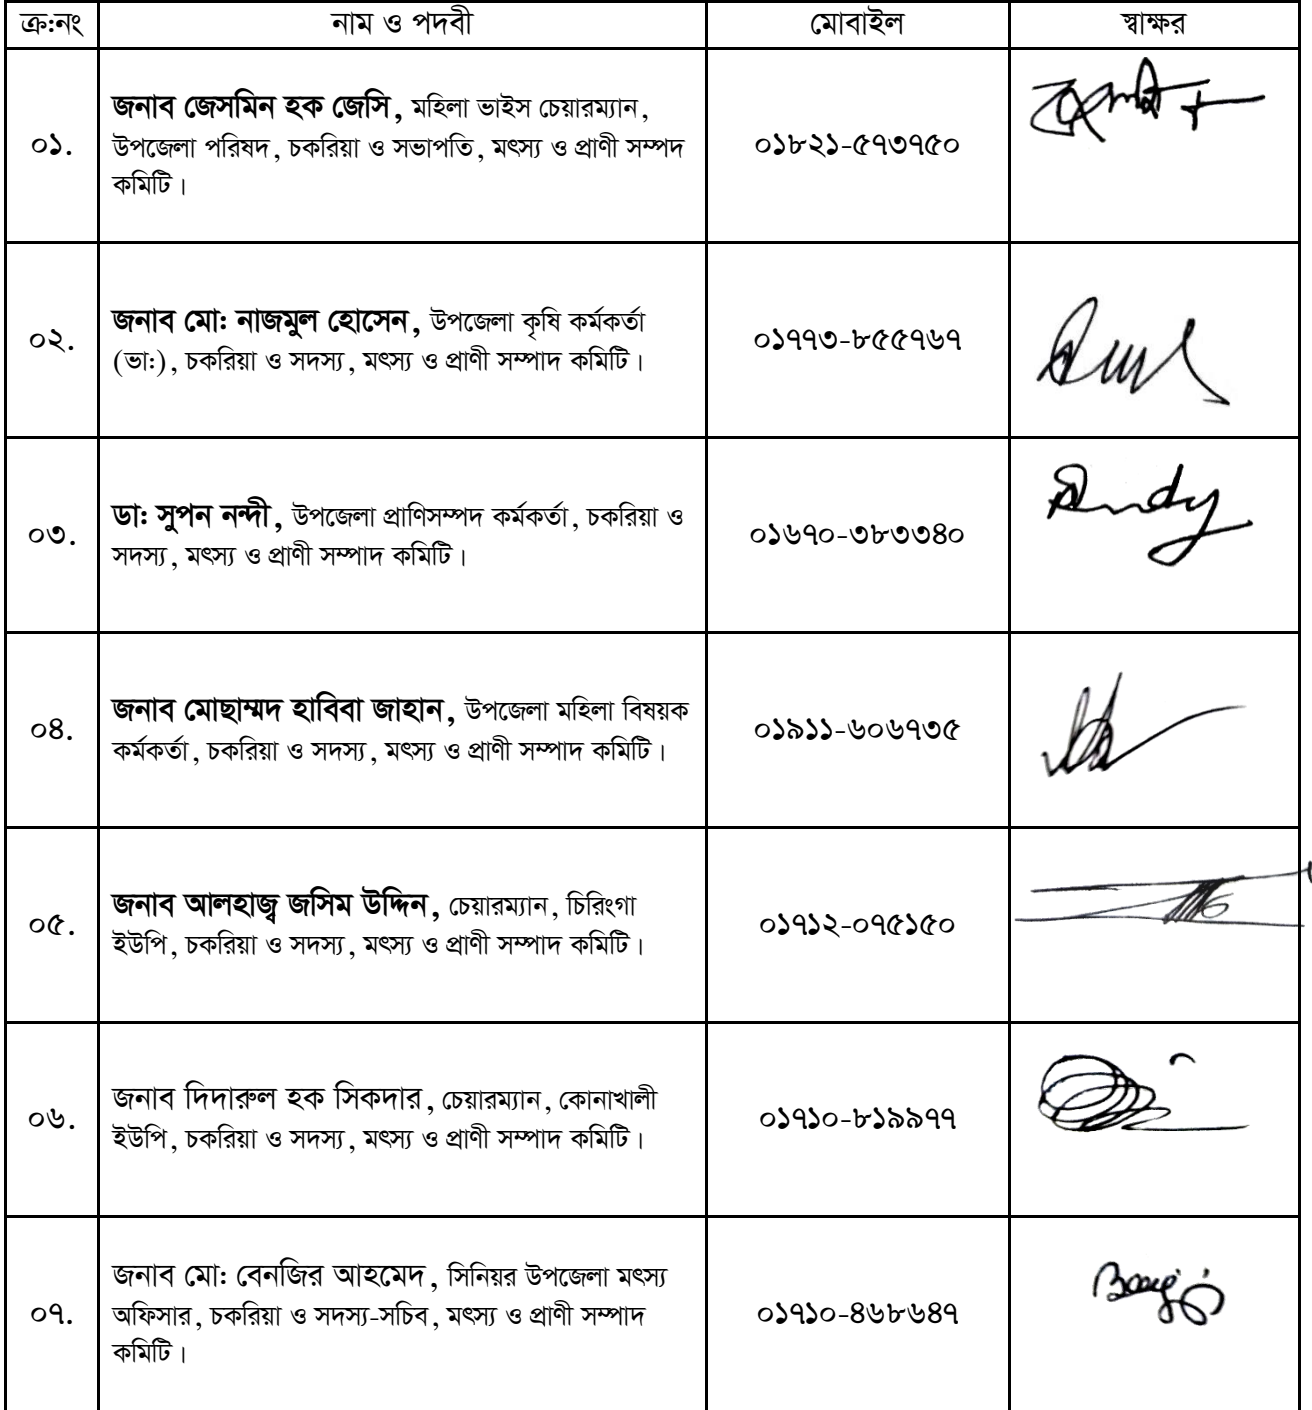 ক্র:নং নাম ও পদবী মোবাইল স্বাক্ষর
জনাব জেসমিন হক জেসি, মহিলা ভাইস চেয়ারম্যান,
০১. উপজেলা পরিষদ, চকরিয়া ও সভাপতি, মৎস্য ও প্রাণী সম্পদ ০১৮২১-৫৭৩৭৫০
কমিটি।
জনাব মো: নাজমুল হোসেন, উপজেলা কৃষি কর্মকর্তা
০২. (ভা:), চকরিয়া ও সদস্য, মৎস্য ও প্রাণী সম্পাদ কমিটি। ০১৭৭৩-৮৫৫৭৬৭
ডা: সুপন নন্দী, উপজেলা প্রাণিসম্পদ কর্মকর্তা, চকরিয়া ও
০৩. সদস্য, মৎস্য ও প্রাণী সম্পাদ কমিটি। ০১৬৭০-৩৮৩৩৪০
জনাব মোছাম্মদ হাবিবা জাহান, উপজেলা মহিলা বিষয়ক
০৪. কর্মকর্তা, চকরিয়া ও সদস্য, মৎস্য ও প্রাণী সম্পাদ কমিটি। ০১৯১১-৬০৬৭৩৫
জনাব আলহাজ্ব জসিম উদ্দিন, চেয়ারম্যান, চিরিংগা
০৫. ইউপি, চকরিয়া ও সদস্য, মৎস্য ও প্রাণী সম্পাদ কমিটি। ০১৭১২-০৭৫১৫০
জনাব দিদারুল হক সিকদার, চেয়ারম্যান, কোনাখালী
০৬. ইউপি, চকরিয়া ও সদস্য, মৎস্য ও প্রাণী সম্পাদ কমিটি। ০১৭১০-৮১৯৯৭৭
জনাব মো: বেনজির আহমেদ, সিনিয়র উপজেলা মৎস্য
০৭. অফিসার, চকরিয়া ও সদস্য-সচিব, মৎস্য ও প্রাণী সম্পাদ ০১৭১০-৪৬৮৬৪৭
কমিটি।